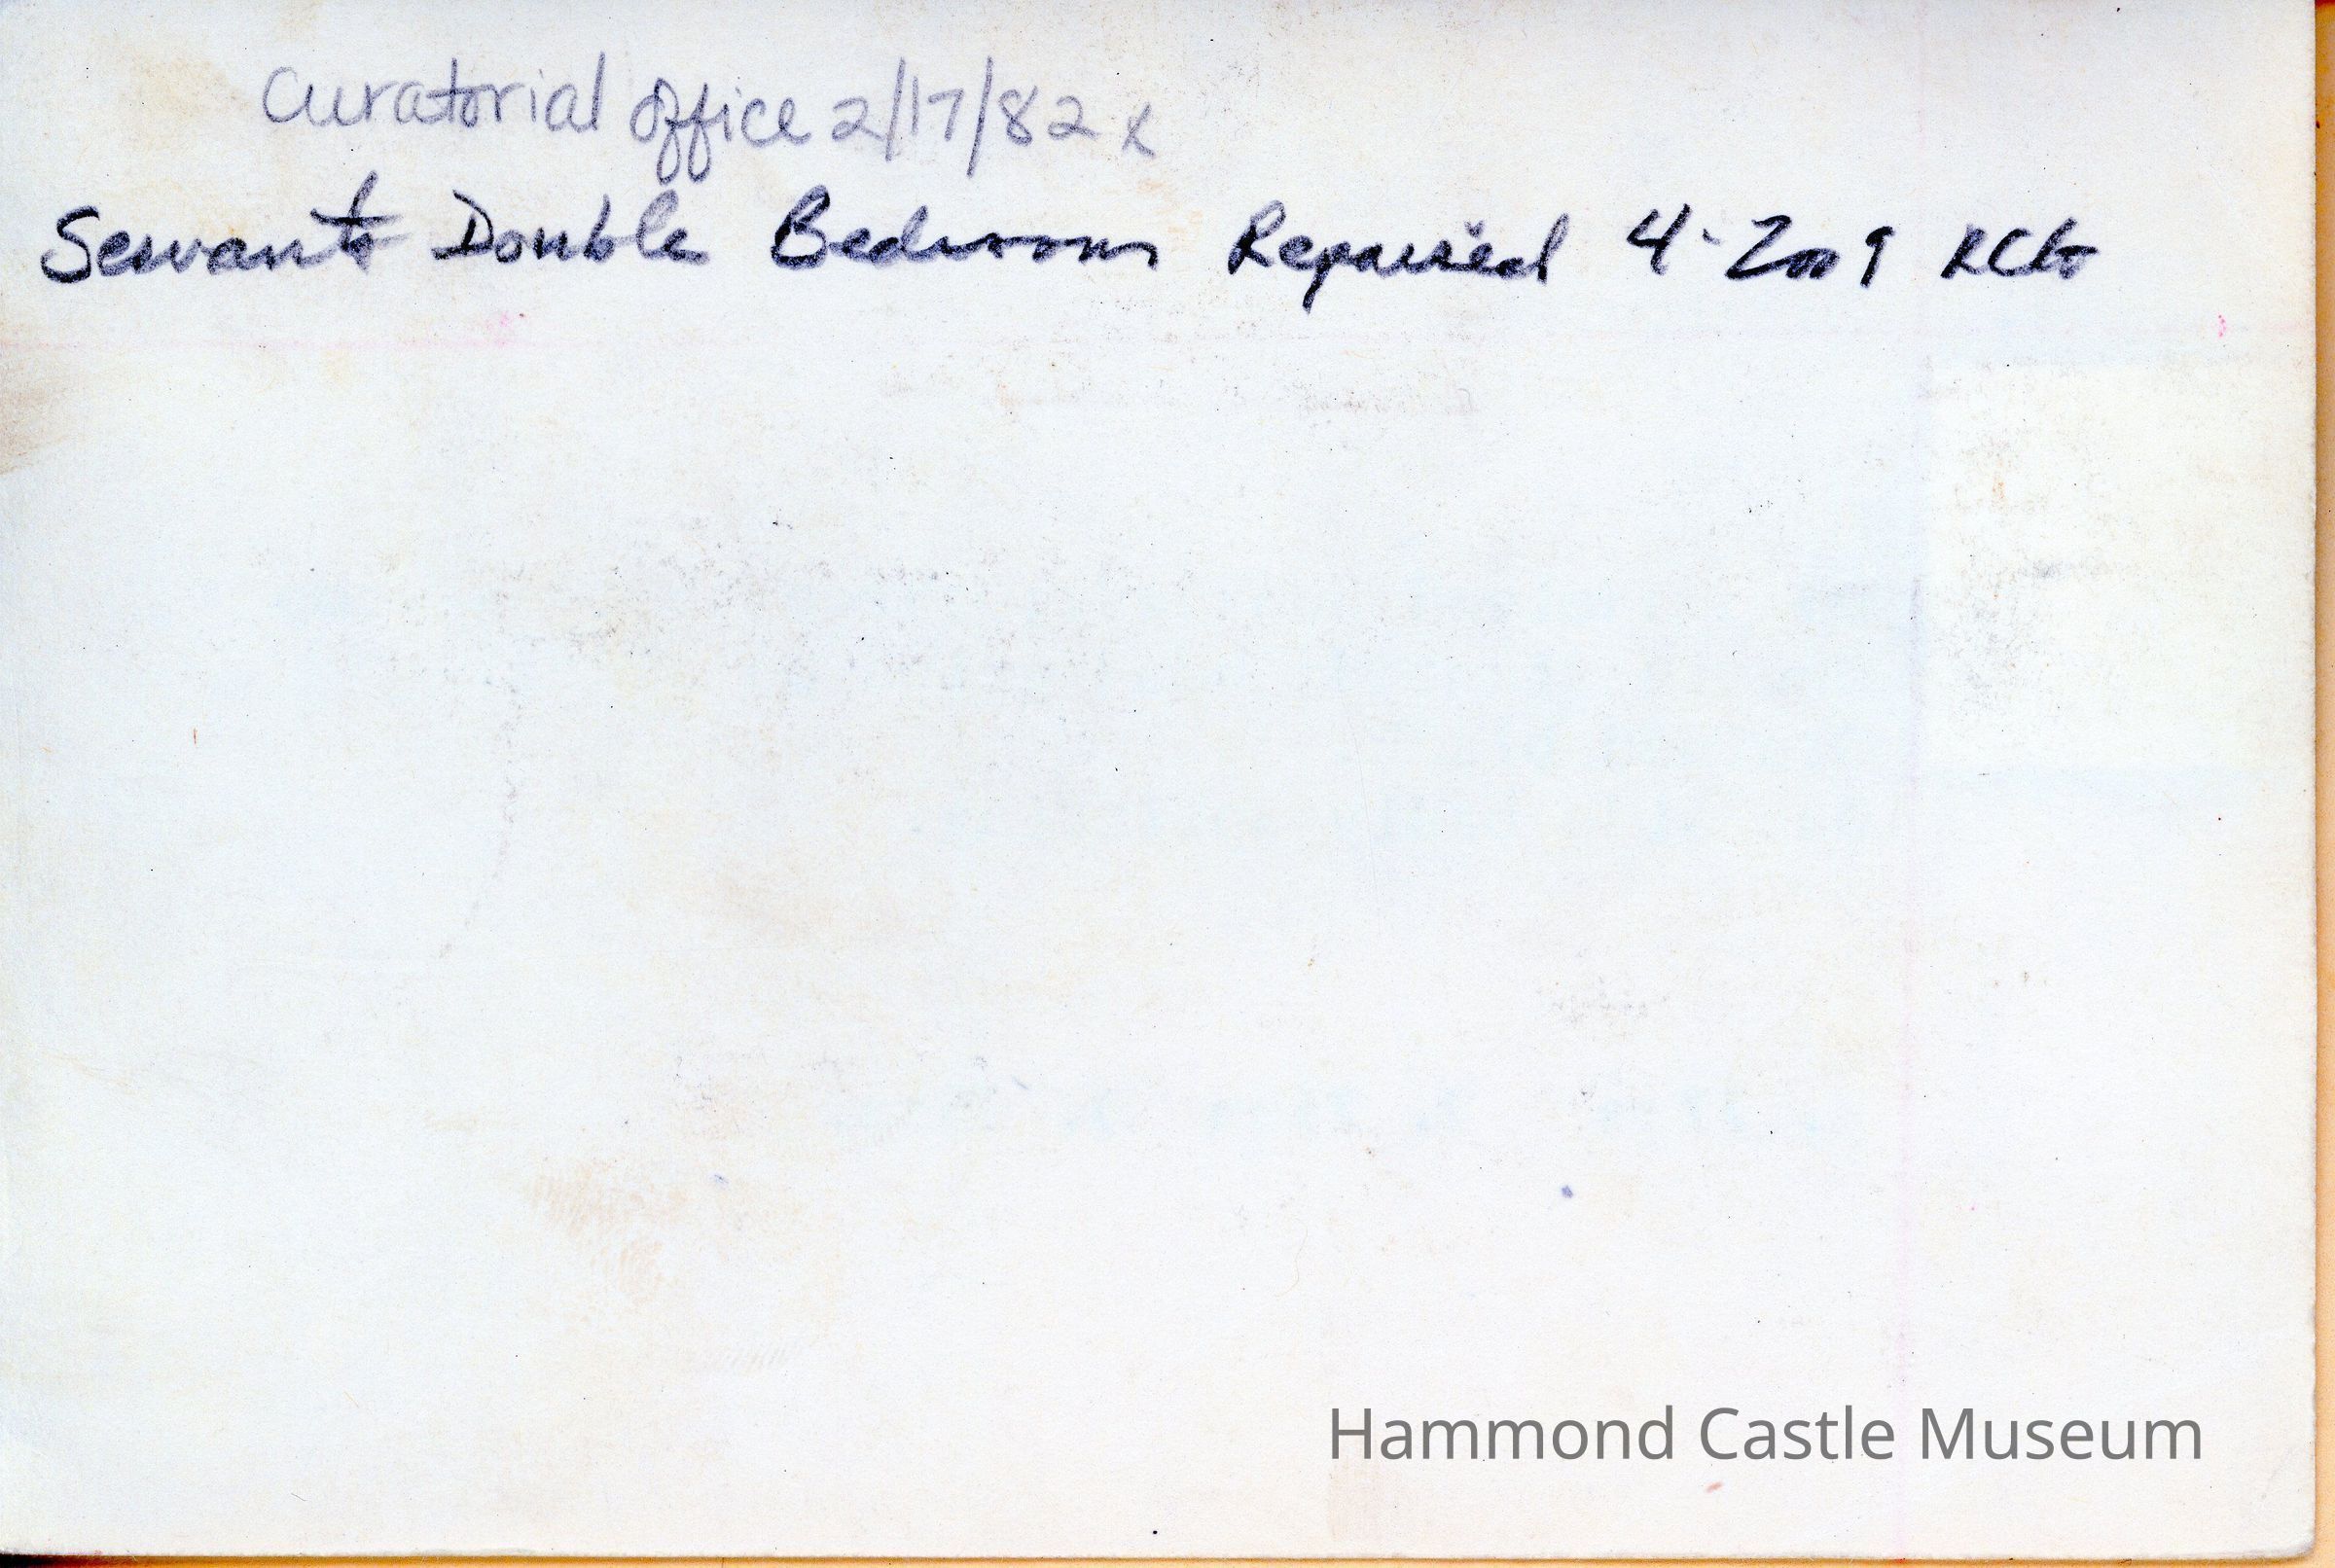 Curatorial office 2/17/82 x
Servants Double Bedroom Repaired 4-2009
Hammond Castle Museum